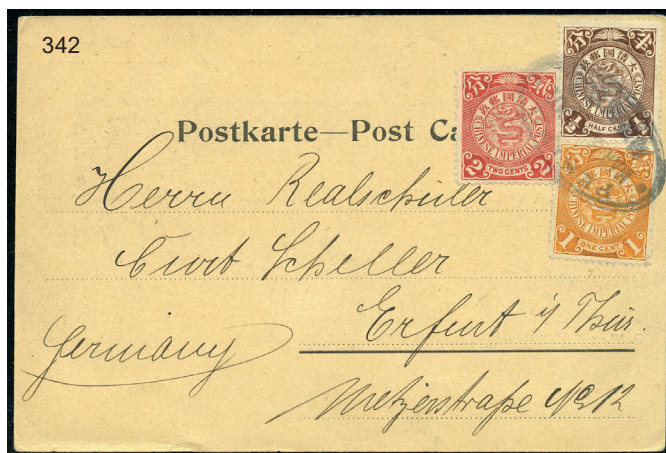 342
Postkarte—Post Ca
大清國郵政
CHINESE IMPERIAL POST
2 TWO CENTS 2
大清國郵政
CHINESE IMPERIAL POST
HALF CENT
大清國郵政
CHINESE IMPERIAL POST
1 ONE CENT 1
Herrn Realschüler
Curt Scheller
Erfurt i/ Thür.
Germany
Metzerstraße No 12